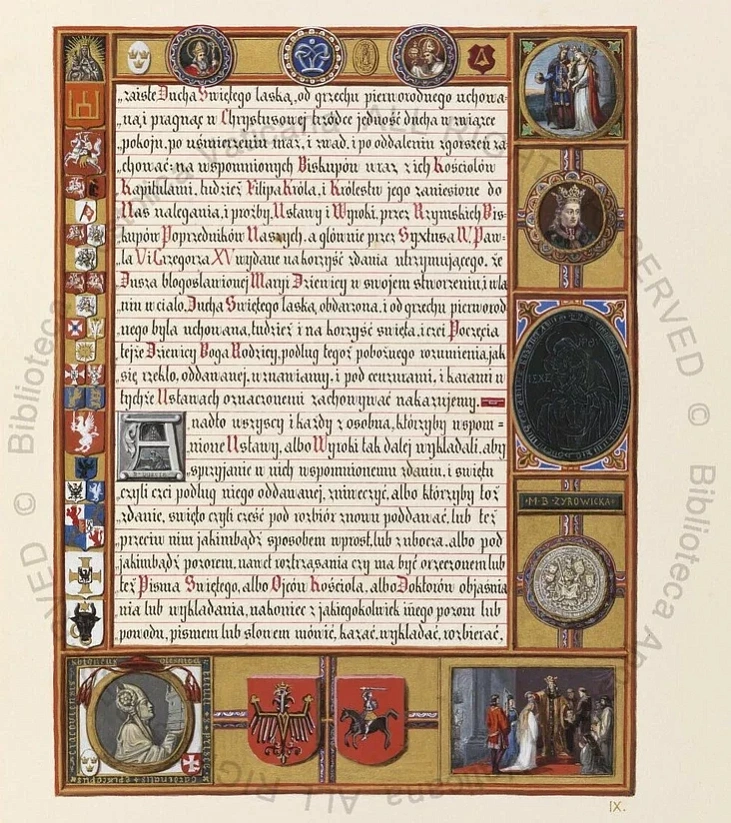 „zaiste Ducha Swiętego łaską, od grzechu pierworodnego uchowa-
„na, i pragnąc w Chrystusowej trzódce jedność ducha w związce
„pokoju, po uśmierzeniu uraz, i zwad, i po oddaleniu zgorszeń za
„chować: na wspomnionych Biskupów wraz z ich Kościołów
„Kapitułami, tudzież Filipa Króla, i Królestw jego zaniesione do
„Nas nalegania, i prożby, Ustawy i Wyroki, przez Rzymskich Bis-
„kupów Poprzedników Naszych, a głównie przez Syxtusa IV. Paw-
„ła V i Grzegorza XV wydane na korzyść zdania utrzymującego, że
„Dusza błogosławionej Maryi Dziewicy w swojem stworzeniu, i wla
„niu w ciało, Ducha Swiętego łaską, obdarzona, i od grzechu pierworod
„nego była uchowana, tudzież i na korzyść święta, i czci Poczęcia
„tejże Dziewicy Boga Rodzicy, podług tegoż pobożnego rozumienia, jak
„się rzekło, oddawanej, wznawiamy, i pod cenzurami, i karami w
„tychże Ustawach oznaczonemi zachowywać nakazujemy.
A nadto wszyscy i każdy z osobna, którzyby wspom=
„nione Ustawy, albo Wyroki tak dalej wykładali, aby
„sprzyjanie w nich wspomnionemu zdaniu, i świętu
„czyli czci podług niego oddawanej, zniweczyć, albo którzyby toż
„zdanie, święto czyli cześć pod rozbiór znowu poddawać, lub też
„przeciw nim jakimbądź sposobem wprost, lub zubocza, albo pod
„jakimbądź pozorem, nawet roztrząsania czy ma być orzeczonem lub
„też Pisma Swiętego, albo Ojców Kościoła, albo Doktorów objaśnia
„nia lub wykładania, nakoniec z jakiegokolwiek innego pozoru lub
„powodu, pismem lub słowem mówić, kazać, wykładać, rozbierać,
·M·B·ŻYROWICKA·
IX.
© Biblioteca Apostolica Vaticana ALL RIGHTS RESERVED